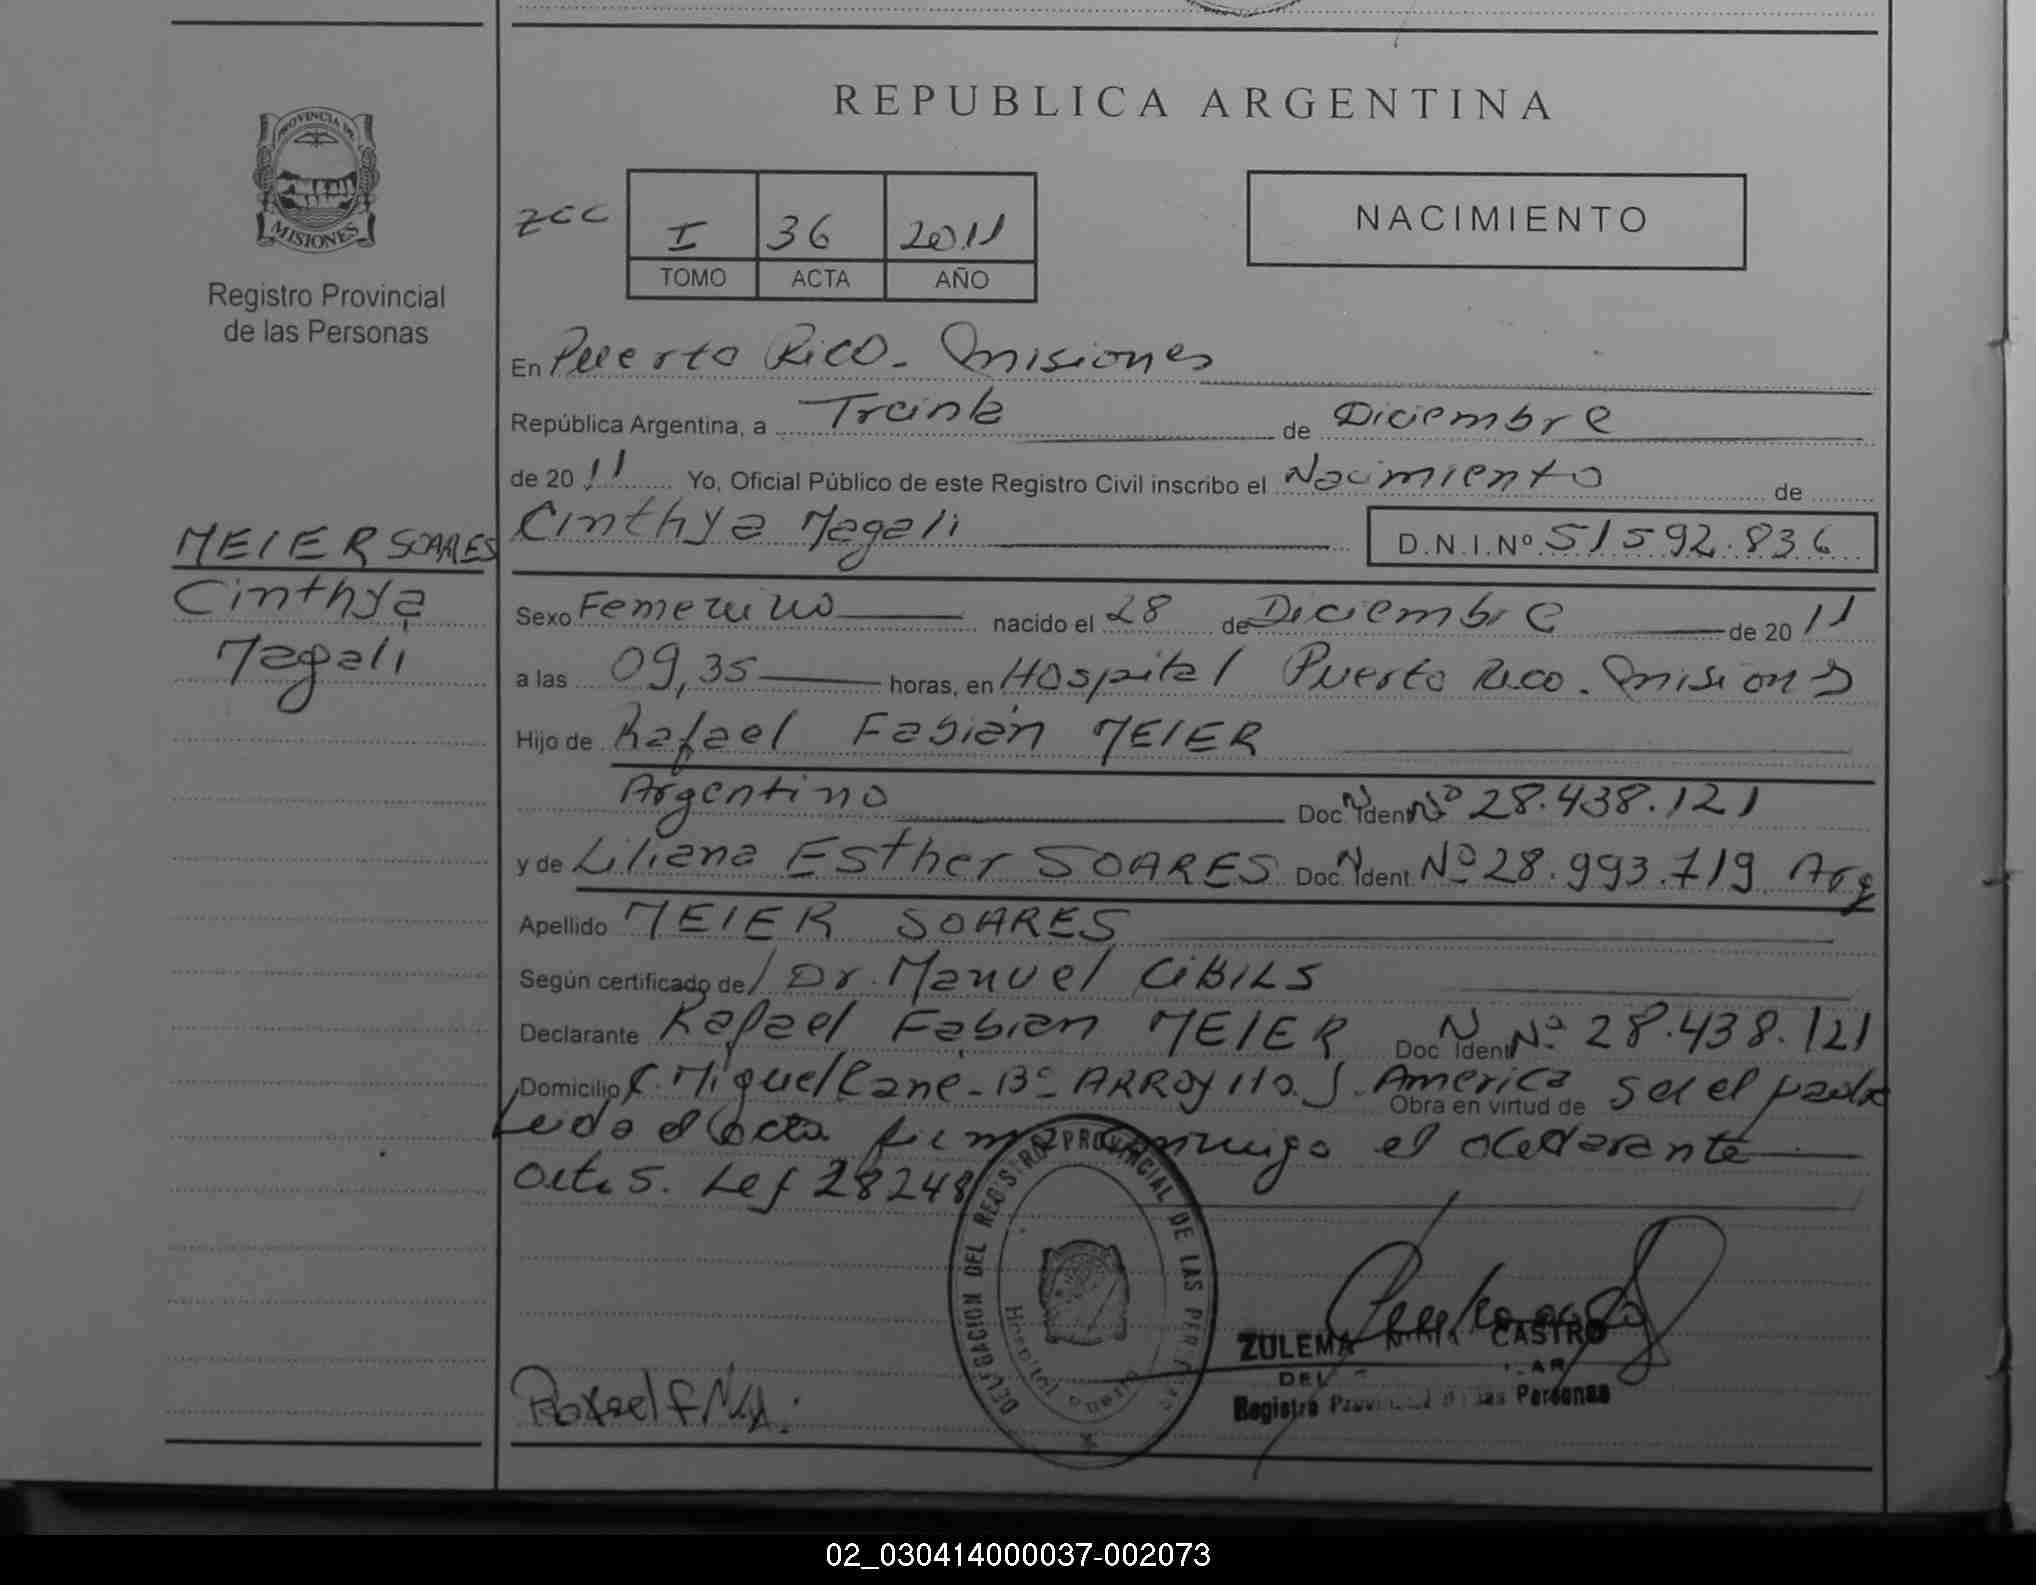 REPUBLICA ARGENTINA
PROVINCIA DE
MISIONES
Registro Provincial
de las Personas
zcc I 36 2011
TOMO ACTA AÑO
NACIMIENTO
En Puerto Rico - Misiones
República Argentina, a Treinta de Diciembre
de 20 11 Yo, Oficial Público de este Registro Civil inscribo el Nacimiento de
MEIER SOARES
Cinthya
Magali
Cinthya Magali D.N.I.Nº 51592.836
Sexo Femenino nacido el 28 de Diciembre de 20 11
a las 09,35 horas, en Hospital Puerto Rico. Misiones
Hijo de Rafael Fabián MEIER
Argentino Doc. N Ident Nº 28.438.121
y de Liliana Esther SOARES Doc. N Ident. Nº 28.993.719 Arg
Apellido MEIER SOARES
Según certificado de / Dr. Manuel CIBILS
Declarante Rafael Fabian MEIER Doc N Ident Nº 28.438.121
Domicilio C. Miguel Cané - Bº ARROYITO. J. America Obra en virtud de Ser el padre
Leida el acta firma conmigo el declarante
Ley 28248
DELEGACION DEL REGISTRO PROVINCIAL DE LAS PERSONAS
ZULEMA CASTRO
DEL
Registro Provincial de las Personas
Rafael F M
02_030414000037-002073